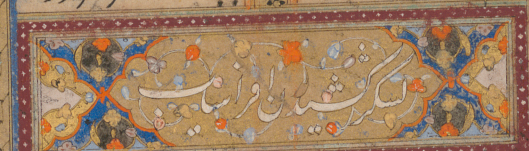 لشکر کشیدن افراسیاب